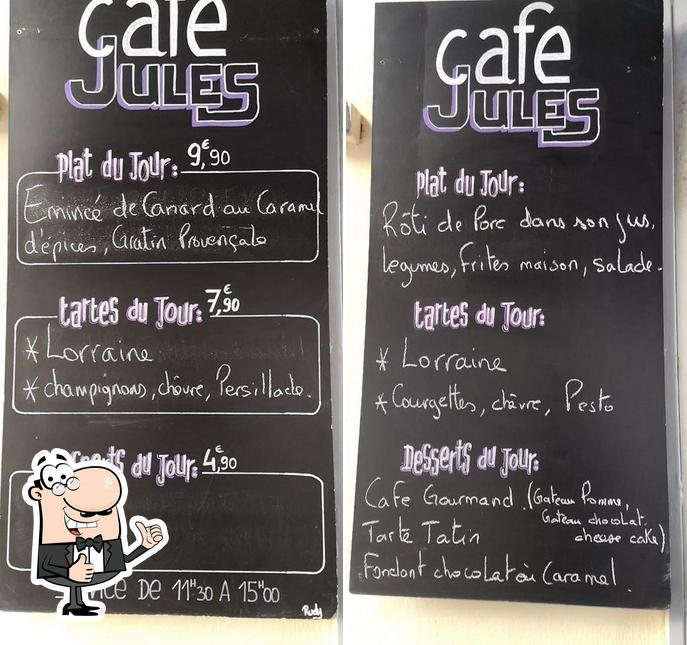 cafe
JULES
Plat du Jour: 9,€90
Emincé de Canard au Caramel
d'épices, Gratin Provençale
tartes du Jour: 7,€90
* Lorraine
* champignons, chèvre, Persillade.
du Jour: 4,€90
DE 11H30 A 15H00
Rudy
cafe
JULES
Plat du Jour:
Rôti de Porc dans son jus,
legumes, frites maison, salade.
tartes du Jour:
* Lorraine
* Courgettes, chèvre, Pesto
Desserts du Jour:
Cafe Gourmand (Gateau Pomme,
Gateau chocolat,
Tarte Tatin cheese cake)
Fondant chocolat ou Caramel.